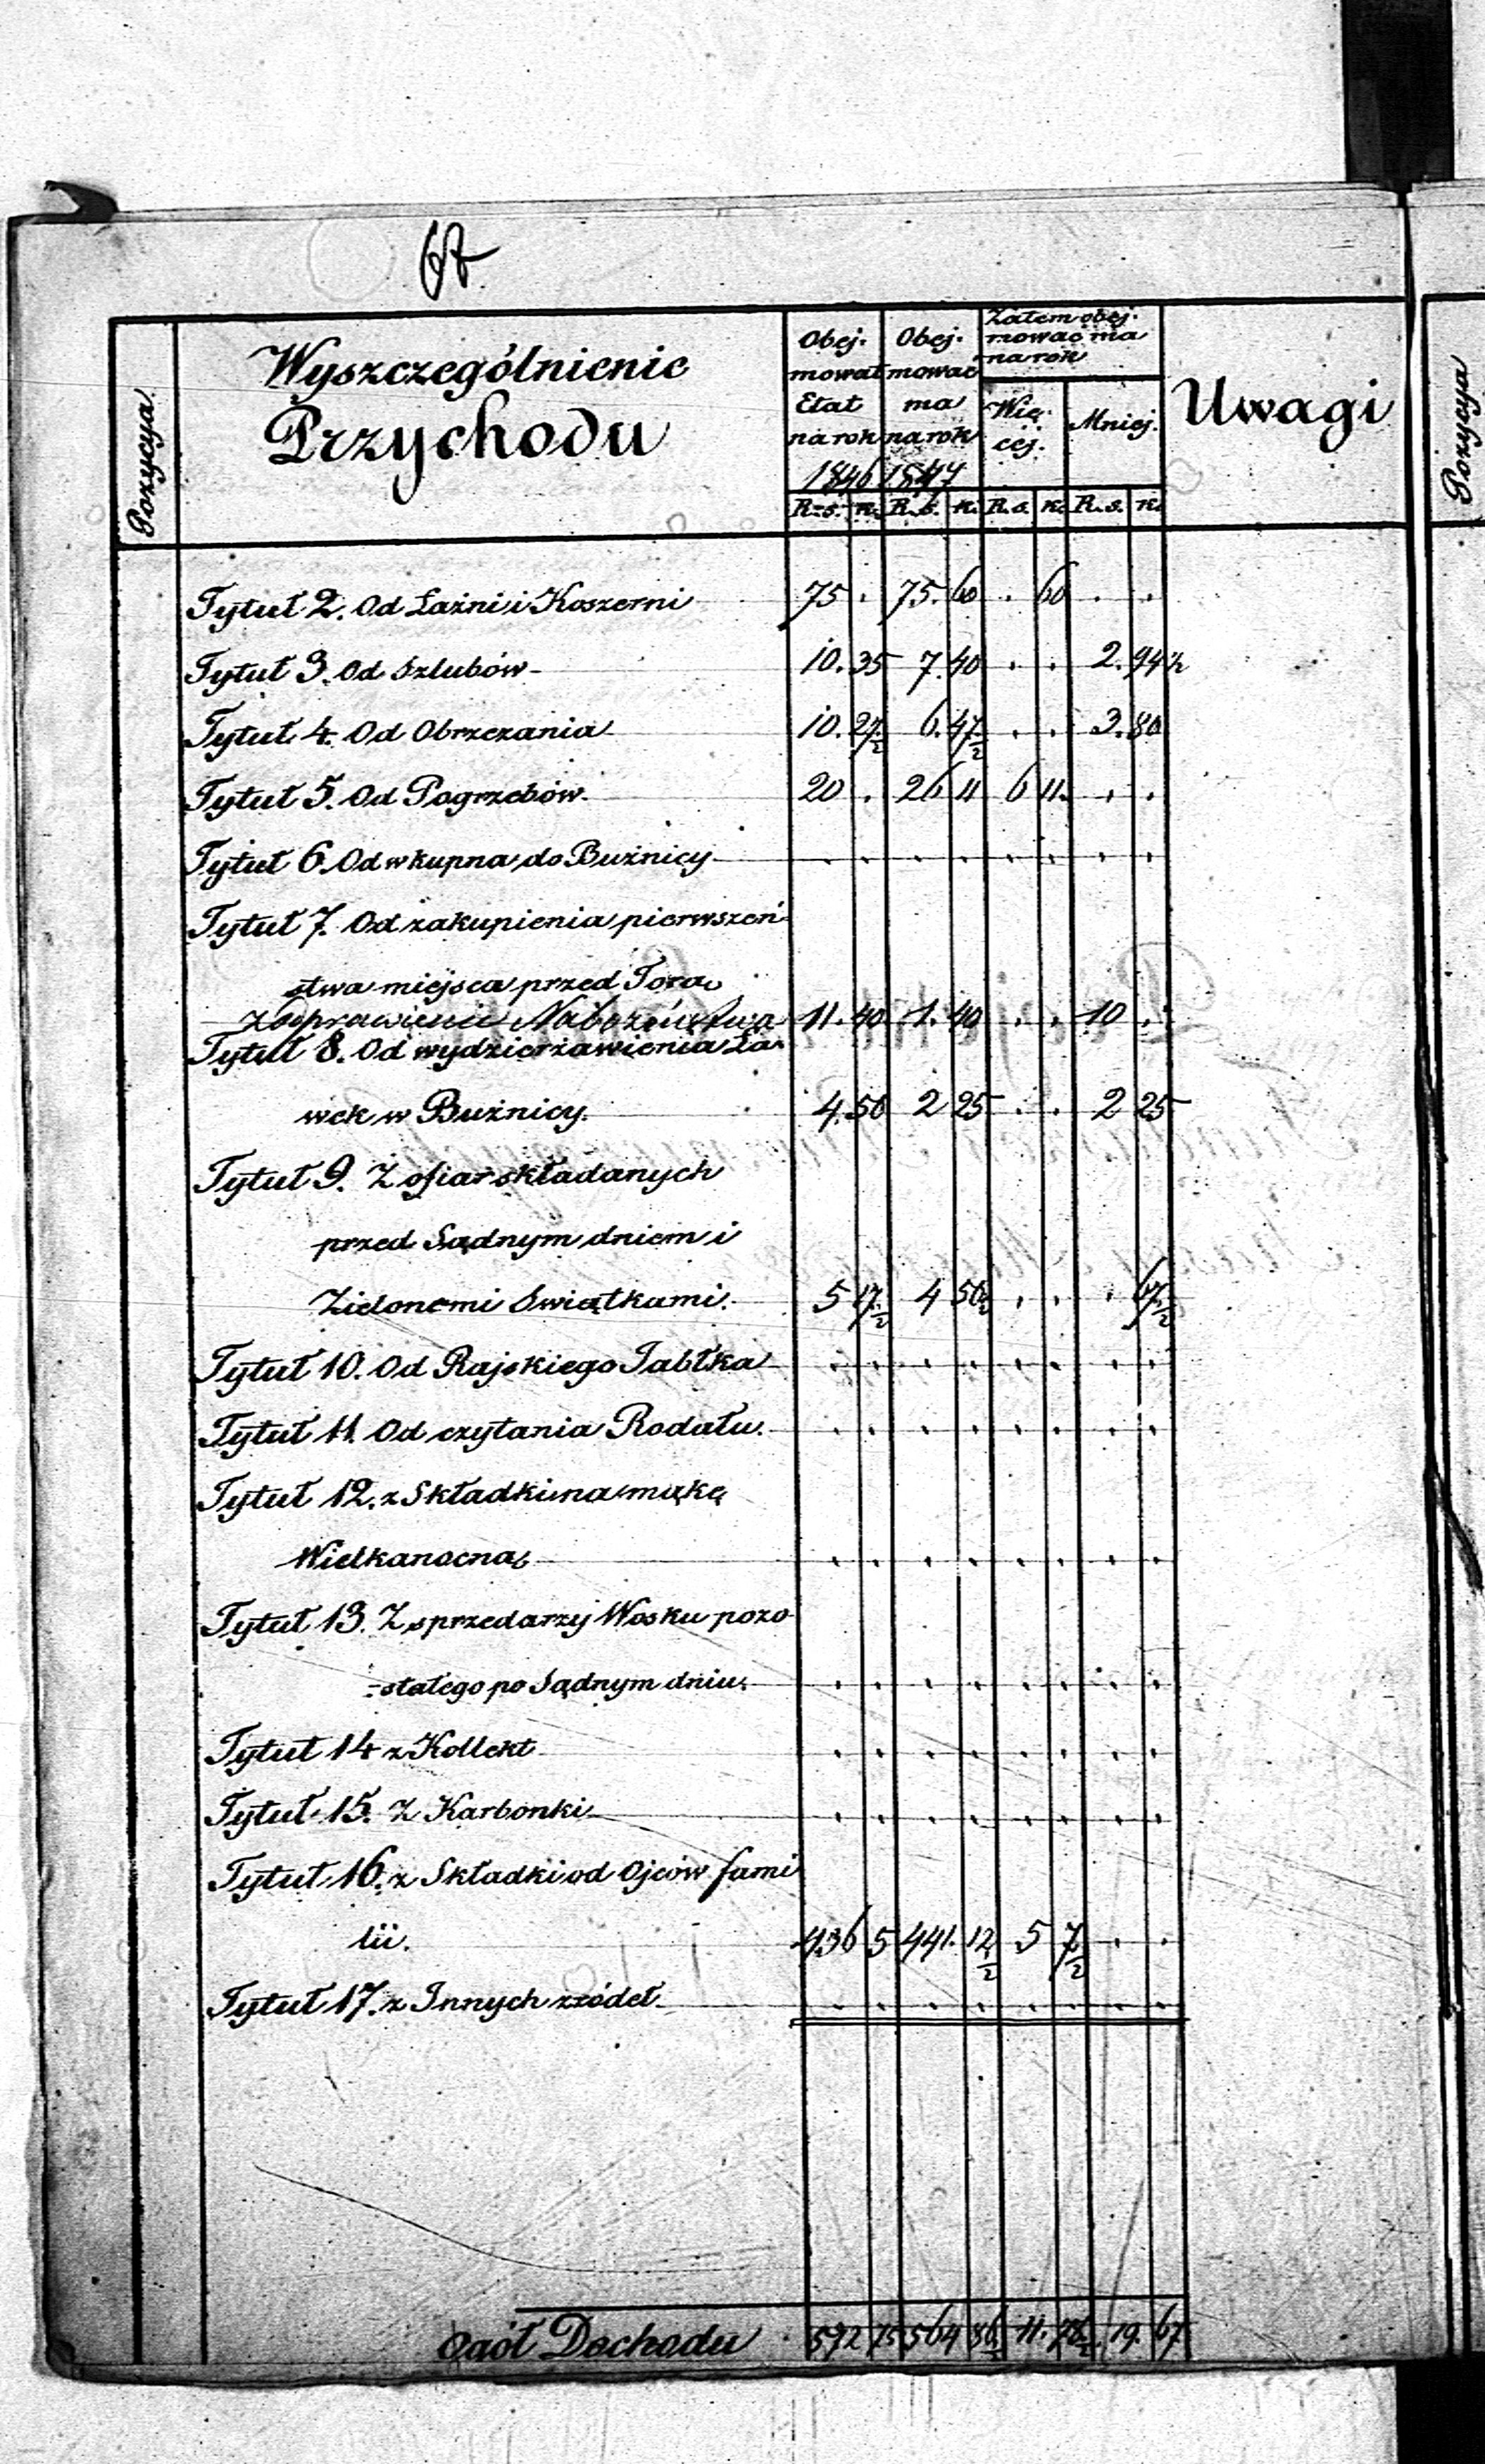 67.
Pozycya
Wyszczególnienie
Przychodu
Obej-
mował
Etat
na rok
1846
Obej-
mować
ma
na rok
1847
Zatem obej-
mować ma
na rok
Wię-
cej.
Mniej.
Uwagi
R. s. k. R. s. k. R. s. k. R. s. k.
Tytuł 2. Od Łaźni i Koszerni 75 . 75. 60 . 60 . .
Tytuł 3. Od Szlubów 10. 35 7. 40 . . 2. 94 ½
Tytuł 4. Od Obrzezania 10. 27½ 6. 47½ . . 3. 80
Tytuł 5. Od Pogrzebów. 20 . 26 11 6 11. . .
Tytuł 6. Od wkupna do Bużnicy . . . . . . . .
Tytuł 7. Od zakupienia pierwszeń-
stwa miejsca przed Torą
i odprawienie Nabożeństwa 11. 40 1. 40 . . 10 .
Tytuł 8. Od wydzierżawienia Ła-
wek w Bużnicy. 4. 50 2 25 . . 2 25
Tytuł 9. Z ofiar składanych
przed Sądnym dniem i
Zielonemi Swiątkami. 5 17½ 4 50½ . . . 67½
Tytuł 10. Od Rajskiego Jabłka . . . . . . . .
Tytuł 11. Od czytania Rodału. . . . . . . . .
Tytuł 12. z Składki na mąkę
Wielkanocną . . . . . . . .
Tytuł 13. Z sprzedarzy Wosku pozo-
-stałego po Sądnym dniu. . . . . . . . .
Tytuł 14 z Kollekt . . . . . . . .
Tytuł 15. Z Karbonki . . . . . . . .
Tytuł 16. z Składki od Ojców fami
lii. 436 5 441. 12½ 5 7½ . .
Tytuł 17. z Innych zródeł . . . . . . . .
Ogół Dochodu 572 75 564 86½ 11. 78½ 19. 67
Pozycya